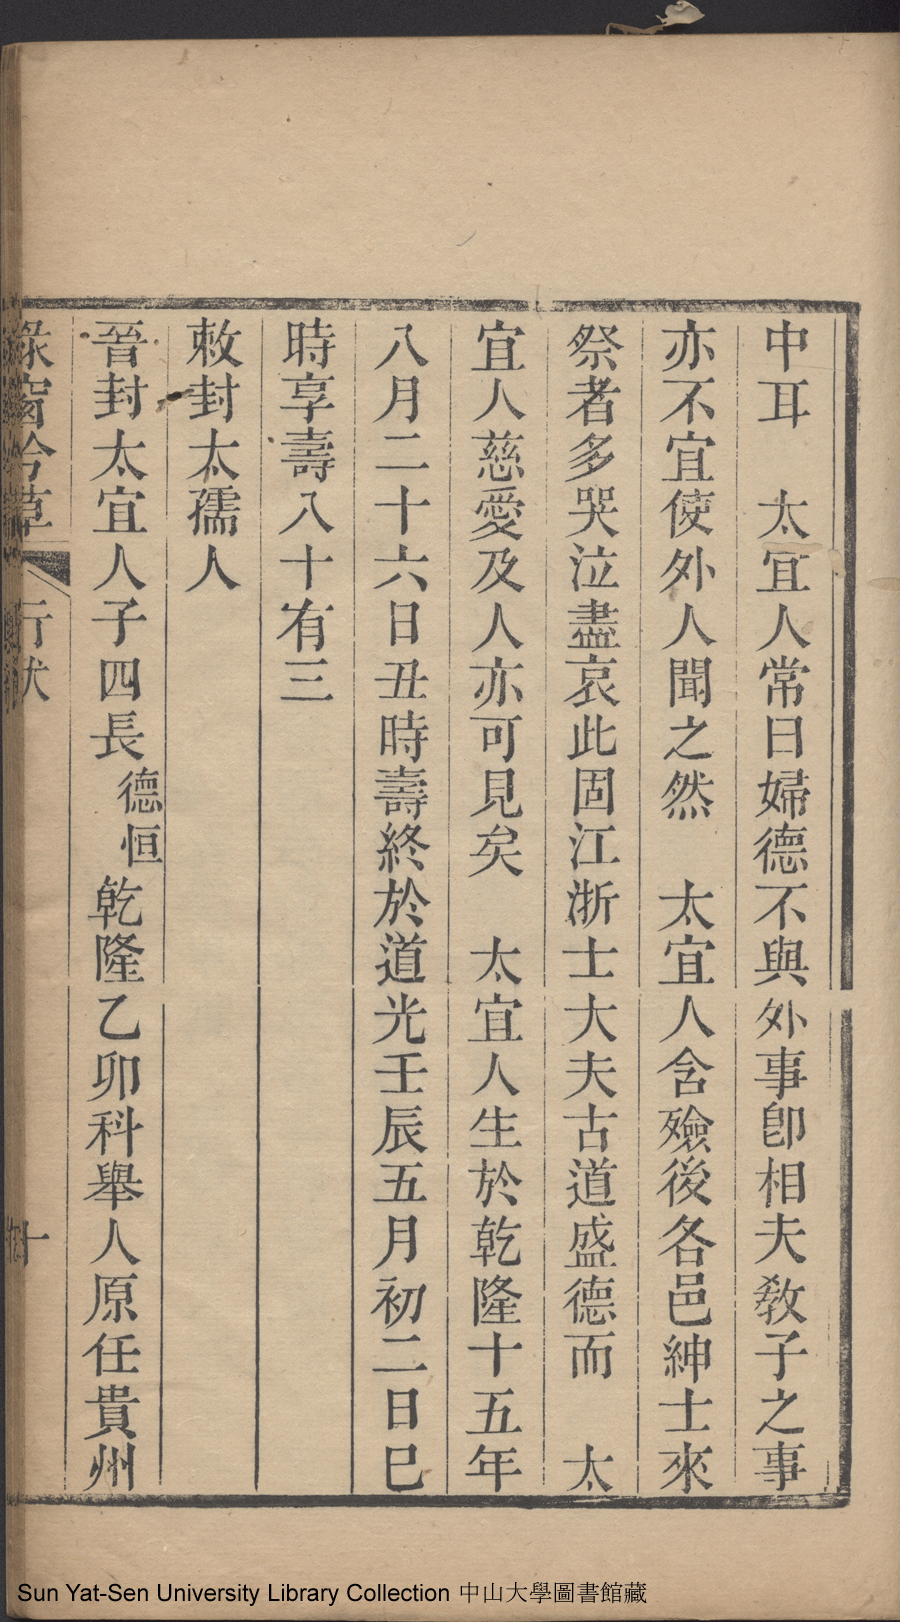 中耳　太宜人常曰婦德不與外事卽相夫敎子之事
亦不宜使外人聞之然　太宜人含殮後各邑紳士來
祭者多哭泣盡哀此固江浙士大夫古道盛德而　太
宜人慈愛及人亦可見矣　太宜人生於乾隆十五年
八月二十六日丑時壽終於道光壬辰五月初二日巳
時享壽八十有三
敕封太孺人
晉封太宜人子四長德恒乾隆乙卯科舉人原任貴州
綠窗吟草　行狀　十
Sun Yat-Sen University Library Collection 中山大學圖書館藏